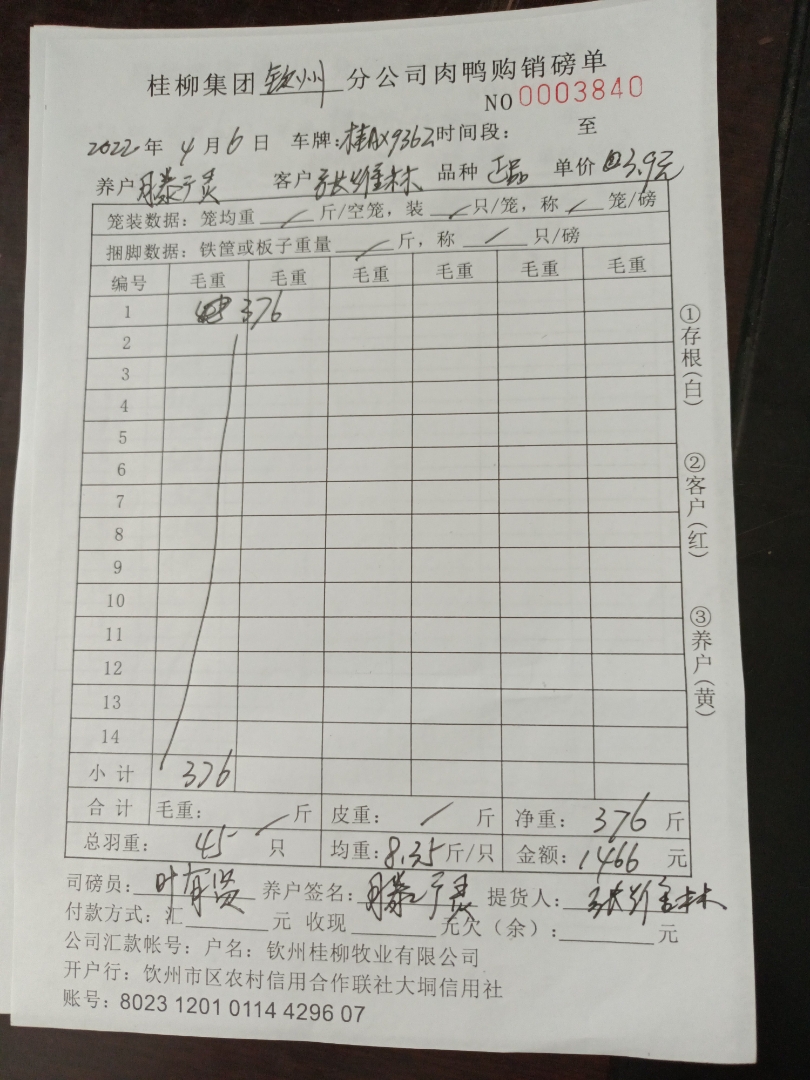 桂柳集团 钦州 分公司肉鸭购销磅单
NO 0003840
2022 年 4 月 6 日 车牌:桂AX9362 时间段: 至
养户 滕广灵 客户 张维林 品种 正品 单价 3.9元
笼装数据:笼均重 / 斤/空笼,装 / 只/笼,称 / 笼/磅
捆脚数据:铁筐或板子重量 / 斤,称 / 只/磅
编号 毛重 毛重 毛重 毛重 毛重 毛重
1 376
2
3
4
5
6
7
8
9
10
11
12
13
14
小计 376
合计 毛重: / 斤 皮重: / 斤 净重: 376 斤
总羽重: 45 只 均重:8.35斤/只 金额:1466 元
司磅员: 养户签名:滕广灵 提货人:张维林
付款方式:汇 元 收现 元欠(余): 元
公司汇款帐号:户名:钦州桂柳牧业有限公司
开户行:钦州市区农村信用合作联社大垌信用社
账号:8023 1201 0114 4296 07
①存根(白)
②客户(红)
③养户(黄)